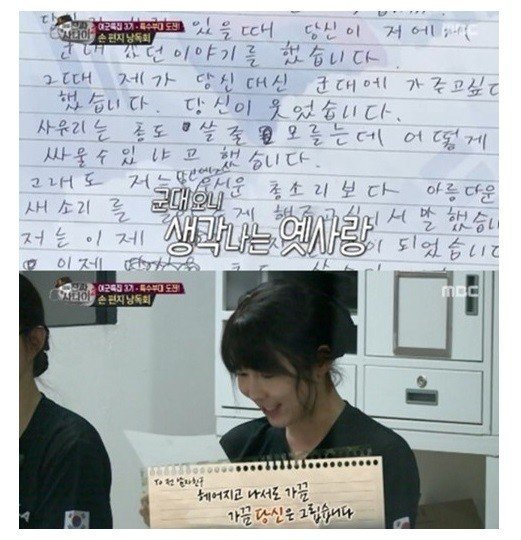 진짜 사나이
여군특집 3기 - 특수부대 도전!
손 편지 낭독회
MBC
있을때 당신이 저에게
군대 갔던 이야기를 했습니다.
그때 제가 당신 대신 군대에 가주고싶다
했습니다. 당신이 웃었습니다.
사유리는 총도 쏠 줄 모르는데 어떻게
싸울수 있냐고 했습니다.
그래도 저는 무서운 총소리보다 아름다운
새소리를 말했습니
저는 이제 이 되었습니다
이제
군대오니
생각나는 옛사랑
진짜 사나이
여군특집 3기 - 특수부대 도전!
손 편지 낭독회
MBC
To 전 남자친구
헤어지고 나서도 가끔
가끔 당신은 그립습니다